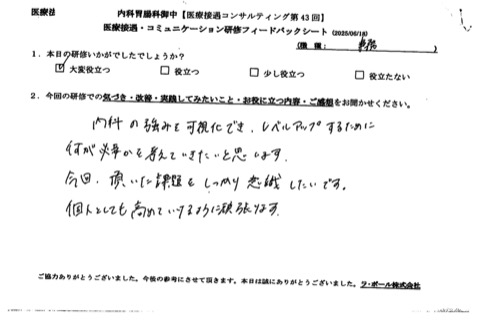 医療法 内科胃腸科御中【医療接遇コンサルティング第43回】
医療接遇・コミュニケーション研修フィードバックシート (2025/06/18)
1．本日の研修いかがでしたでしょうか？
☑大変役立つ □役立つ □少し役立つ □役立たない
2．今回の研修での気づき・改善・実践してみたいこと・お役に立つ内容・ご感想をお聞かせください。
内科の強みを可視化でき、レベルアップするために
何が必要かを考えていきたいと思います。
今回、頂いた課題をしっかり意識したいです。
個人としても高めていけるように頑張ります。
ご協力ありがとうございました。今後の参考にさせて頂きます。本日は誠にありがとうございました。ラ・ポール株式会社